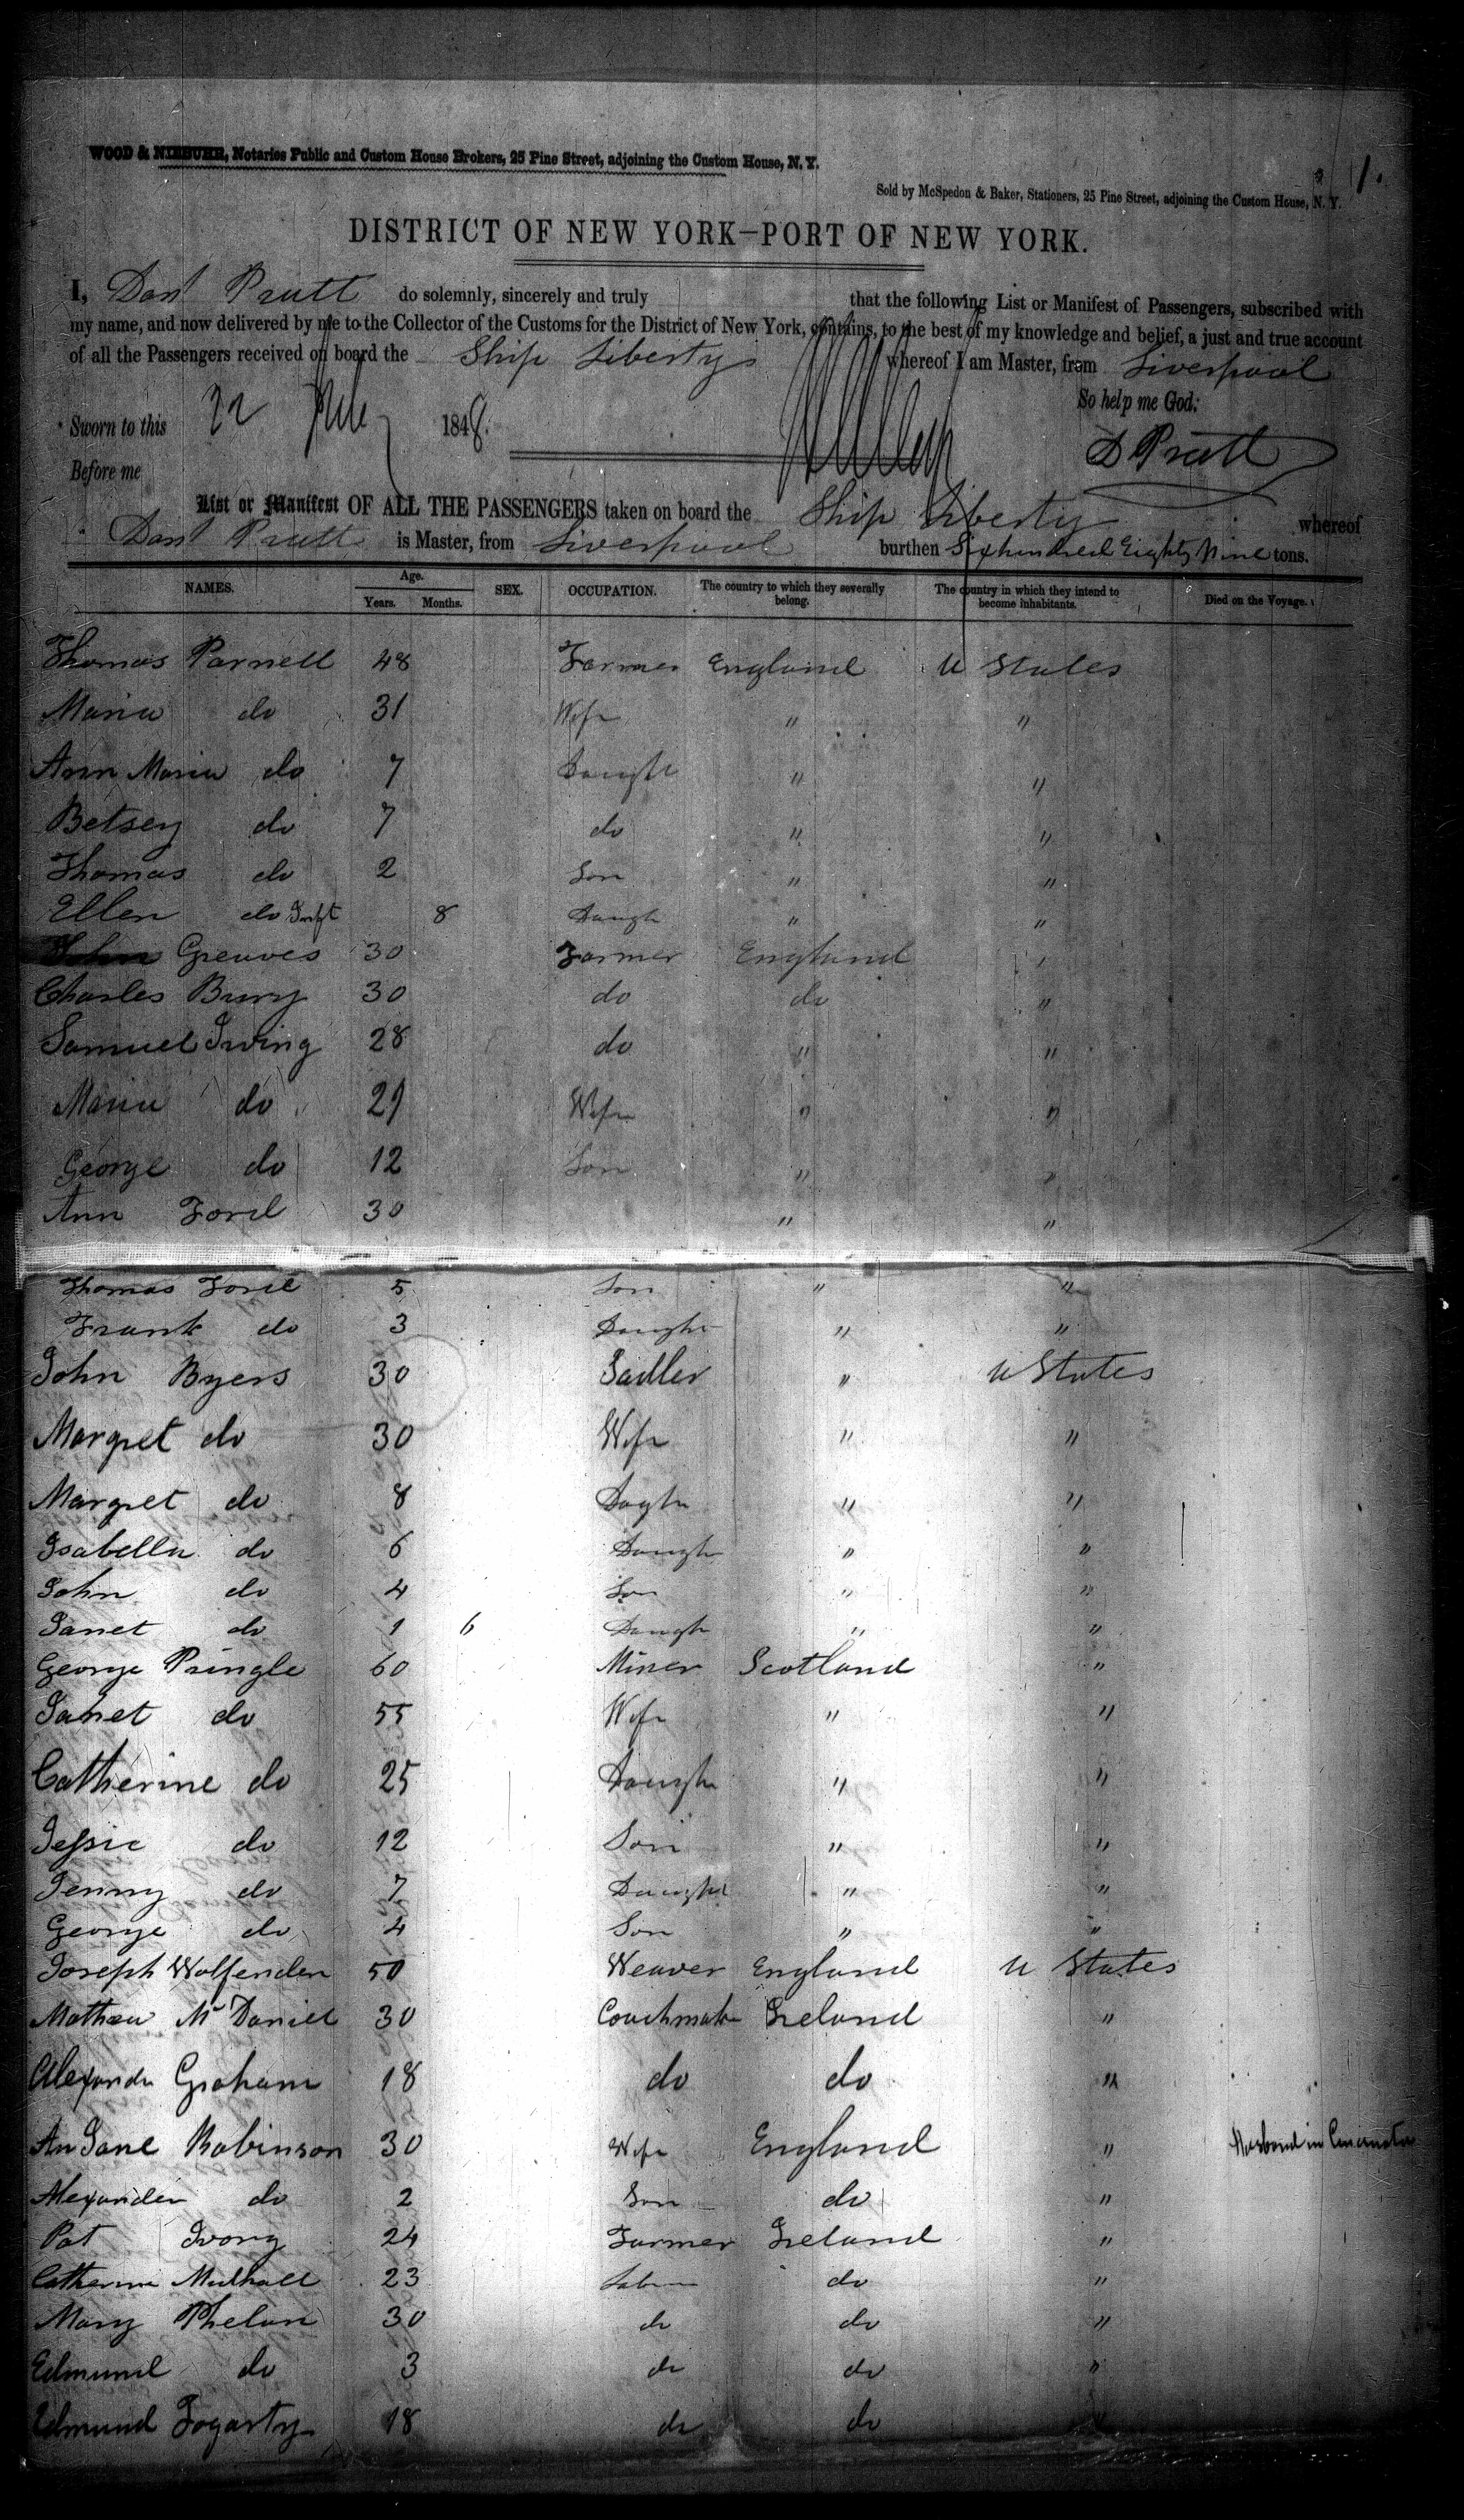 1.
WOOD & NIEBUHR, Notaries Public and Custom House Brokers, 25 Pine Street, adjoining the Custom House, N. Y.
Sold by McSpedon & Baker, Stationers, 25 Pine Street, adjoining the Custom House, N. Y.
DISTRICT OF NEW YORK—PORT OF NEW YORK.
I, Danl Pratt do solemnly, sincerely and truly that the following List or Manifest of Passengers, subscribed with
my name, and now delivered by me to the Collector of the Customs for the District of New York, contains, to the best of my knowledge and belief, a just and true account
of all the Passengers received on board the Ship Liberty whereof I am Master, from Liverpool
So help me God:
Sworn to this 22 1848.
D Pratt
Before me
List or Manifest OF ALL THE PASSENGERS taken on board the Ship Liberty whereof
Danl Pratt is Master, from Liverpool burthen Sixhundred Eighty Nine tons.
NAMES. Age. Years. Months. SEX. OCCUPATION. The country to which they severally belong. The country in which they intend to become inhabitants. Died on the Voyage.
Thomas Parnell 48 Farmer England U States
Maria do 31 Wife " "
Ann Maria do 7 Daught " "
Betsey do 7 do " "
Thomas do 2 Son " "
Ellen do Inft 8 Daugh " "
John Greaves 30 Farmer England "
Charles Bury 30 do do "
Samuel Irving 28 do " "
Maria do 29 Wife " "
George do 12 Son " "
Ann Ford 30 " "
Thomas Ford 5 Son " "
Frank do 3 Daughr " "
John Byers 30 Sadler " U States
Margret do 30 Wife " "
Margret do 8 Daghr " "
Isabella do 6 Daugh " "
John do 4 Son " "
Janet do 1 6 Daugh " "
George Pringle 60 Miner Scotland "
Janet do 55 Wife " "
Catherine do 25 Daugh " "
Jessie do 12 Son " "
Jenny do 7 Daught " "
George do 4 Son " "
Joseph Wolfenden 50 Weaver England U States
Mathew Mc Daniel 30 Coachmak Ireland "
Alexander Graham 18 do do "
An Jane Robinson 30 Wife England " Husband in Cincinata
Alexander do 2 Son do "
Pat Ivory 24 Farmer Ireland "
Catherine Mulhall 23 do "
Mary Phelan 30 do do "
Edmund do 3 do do "
Edmund Fogarty 18 do do "